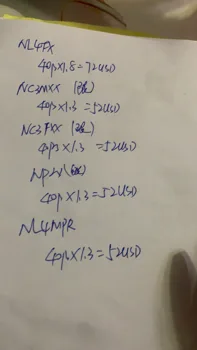 NL4FX
40p×1.8=72USD
NC3MXX
40p×1.3=52USD
NC3FXX
40p×1.3=52USD
40p×1.3=52USD
NL4MPR
40p×1.3=52USD